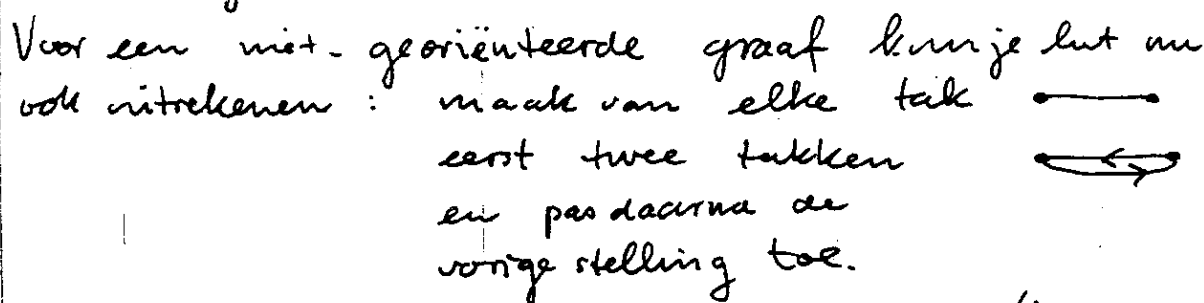 Voor een niet-georiënteerde graaf kun je het nu
ook uitrekenen : maak van elke tak
eerst twee takken
en pas daarna de
vorige stelling toe.